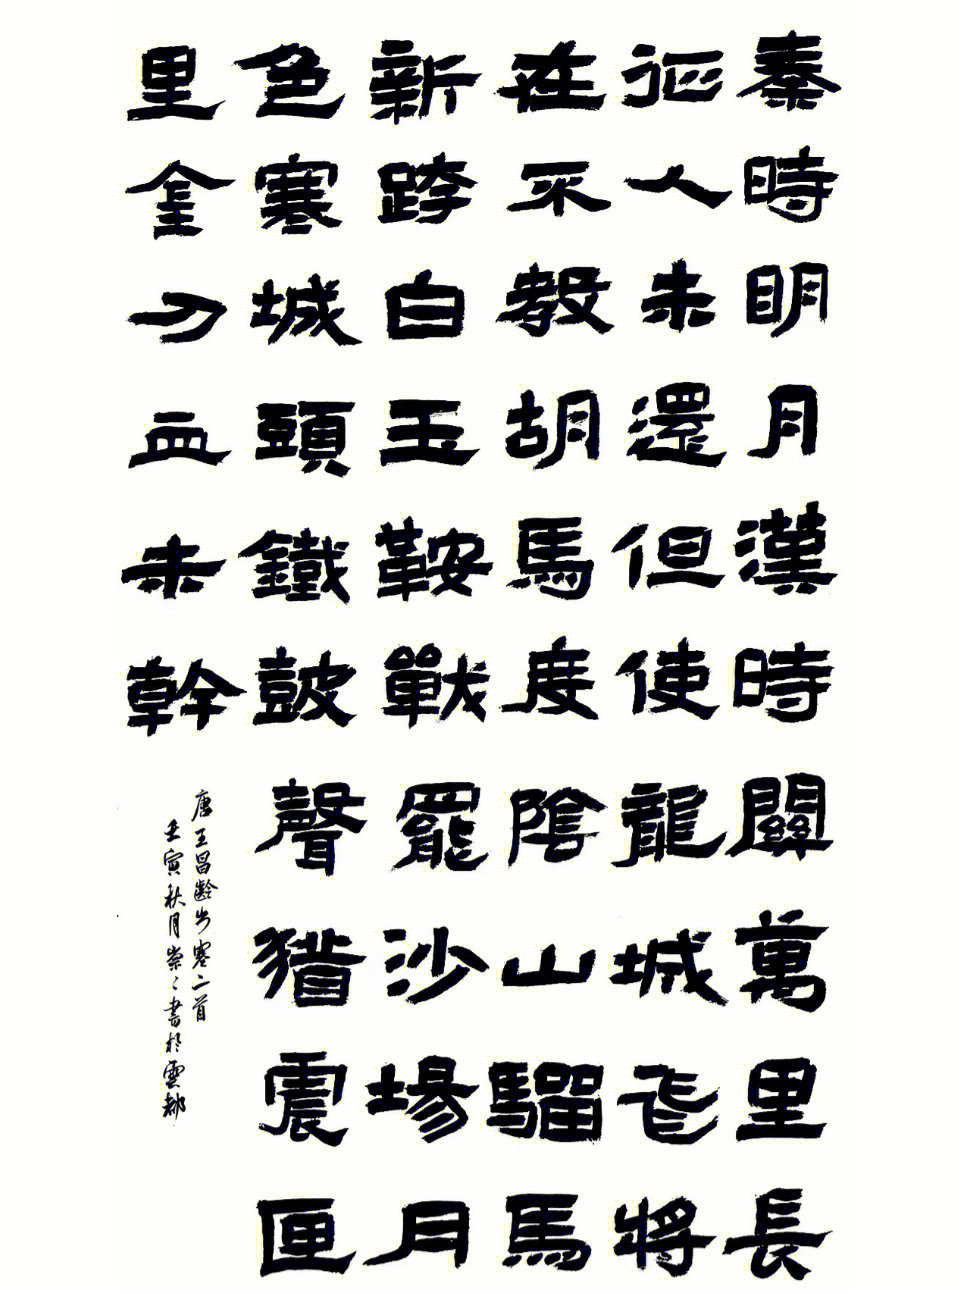 秦時明月漢時關萬里長
征人未還但使龍城飛將
在不教胡馬度陰山騮馬
新跨白玉鞍戰罷沙場月
色寒城頭鐵鼓聲猶震匣
里金刀血未幹
唐王昌齡出塞二首
壬寅秋月崇々書於雲都